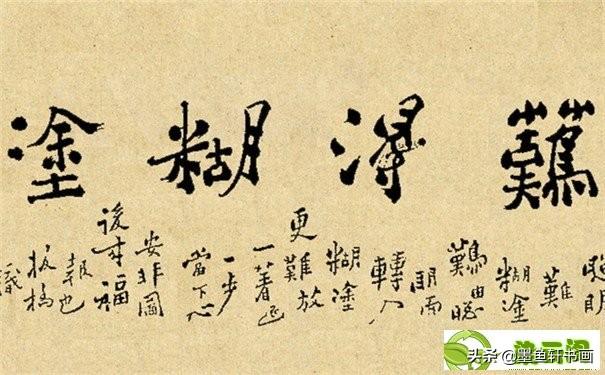 難得糊塗
聰明
難
糊塗
難由聰
明而
轉入
糊塗
更難放
一着退
一步
當下心
安非圖
後来福
報也
板橋
識
头条 @墨鱼轩书画